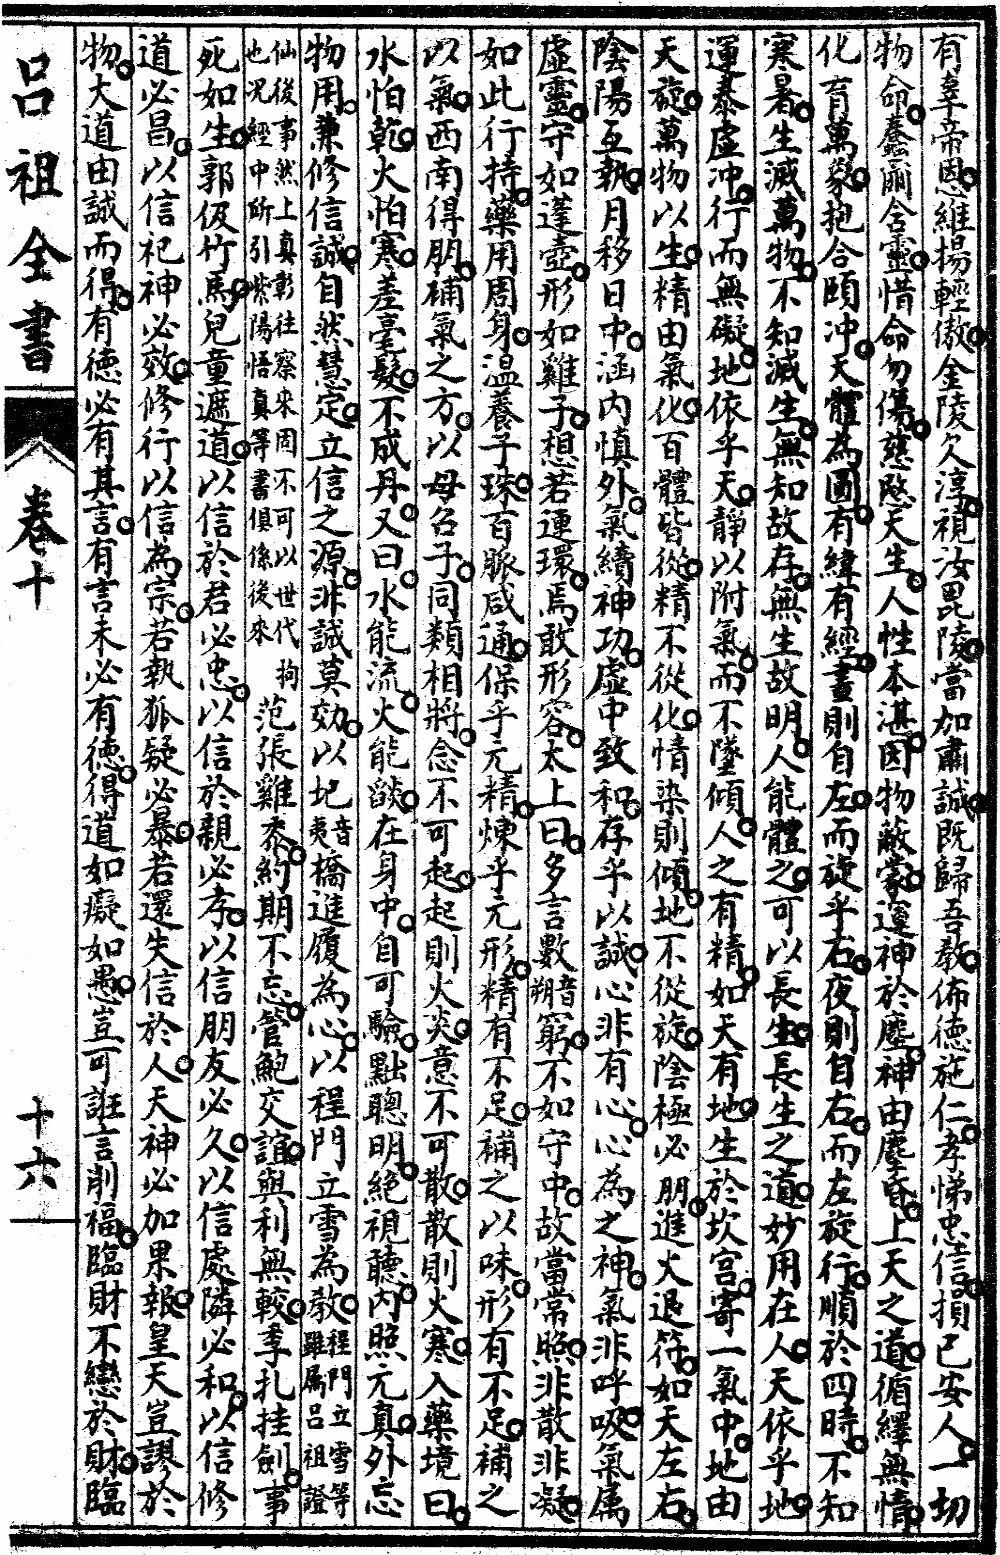 有辜帝恩維揚輕傲金陵欠淳視汝毘陵當加肅誠既歸吾教佈德施仁孝悌忠信損己安人一切
物命蠢蝡含靈惜命勿傷慈愍天生人性本湛因物蔽蒙運神於塵神由塵昏上天之道循繹無惰
化育萬彙抱合頤冲天體為圓有緯有經晝則自左而旋乎右夜則自右而左旋行順於四時不知
寒暑生滅萬物不知滅生無知故存無生故明人能體之可以長生長生之道妙用在人天依乎地
運泰虛冲行而無礙地依乎天靜以附氣而不墜傾人之有精如天有地生於坎宮寄一氣中地由
天旋萬物以生精由氣化百體皆從精不從化情染則傾地不從旋陰極必朋進火退符如天左右
陰陽互執月移日中涵内慎外氣續神功虛中致和存乎以誠心非有心心為之神氣非呼吸氣属
虛靈守如蓬壺形如雞子想若連環焉敢形容太上曰多言數音朔窮不如守中故當常照非散非凝
如此行持藥用周身温養子珠百脈咸通保乎元精煉乎元形精有不足補之以味形有不足補之
以氣西南得朋補氣之方以母召子同類相將念不可起起則火炎意不可散散則火寒入藥境曰
水怕乾火怕寒差毫髮不成丹又曰水能流火能燄在身中自可驗黜聰明絕視聽内照元真外忘
物用兼修信誠自然慧定立信之源非誠莫効以圯音夷橋進履為心以程門立雪為教程門立雪等雖属呂祖證
仙後事然上真彰往察來固不可以世代拘也况經中所引紫陽悟真等書俱係後來范張雞黍約期不忘管鮑交誼與利無較季扎挂劍事
死如生郭伋竹馬兒童遮道以信於君必忠以信於親必孝以信朋友必久以信處隣必和以信修
道必昌以信祀神必效修行以信為宗若執狐疑必暴若還失信於人天神必加果報皇天豈謬於
物大道由誠而得有德必有其言有言未必有德得道如癡如愚豈可誑言削福臨財不戀於財臨
呂祖全書
卷十
十六